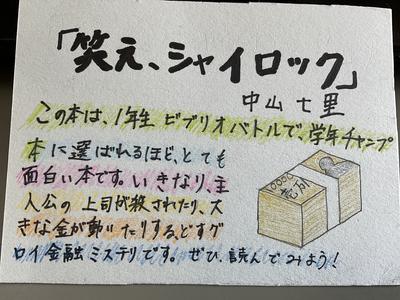 「笑え、シャイロック」
中山七里
この本は、1年生 ビブリオバトルで、学年チャンプ
本に選ばれるほど、とても
面白い本です。いきなり、主
人公の上司が殺されたり、大
きな金が動いたりする、どすグ
ロイ金融ミステリです。ぜひ、読んでみよう!
壱万
10000